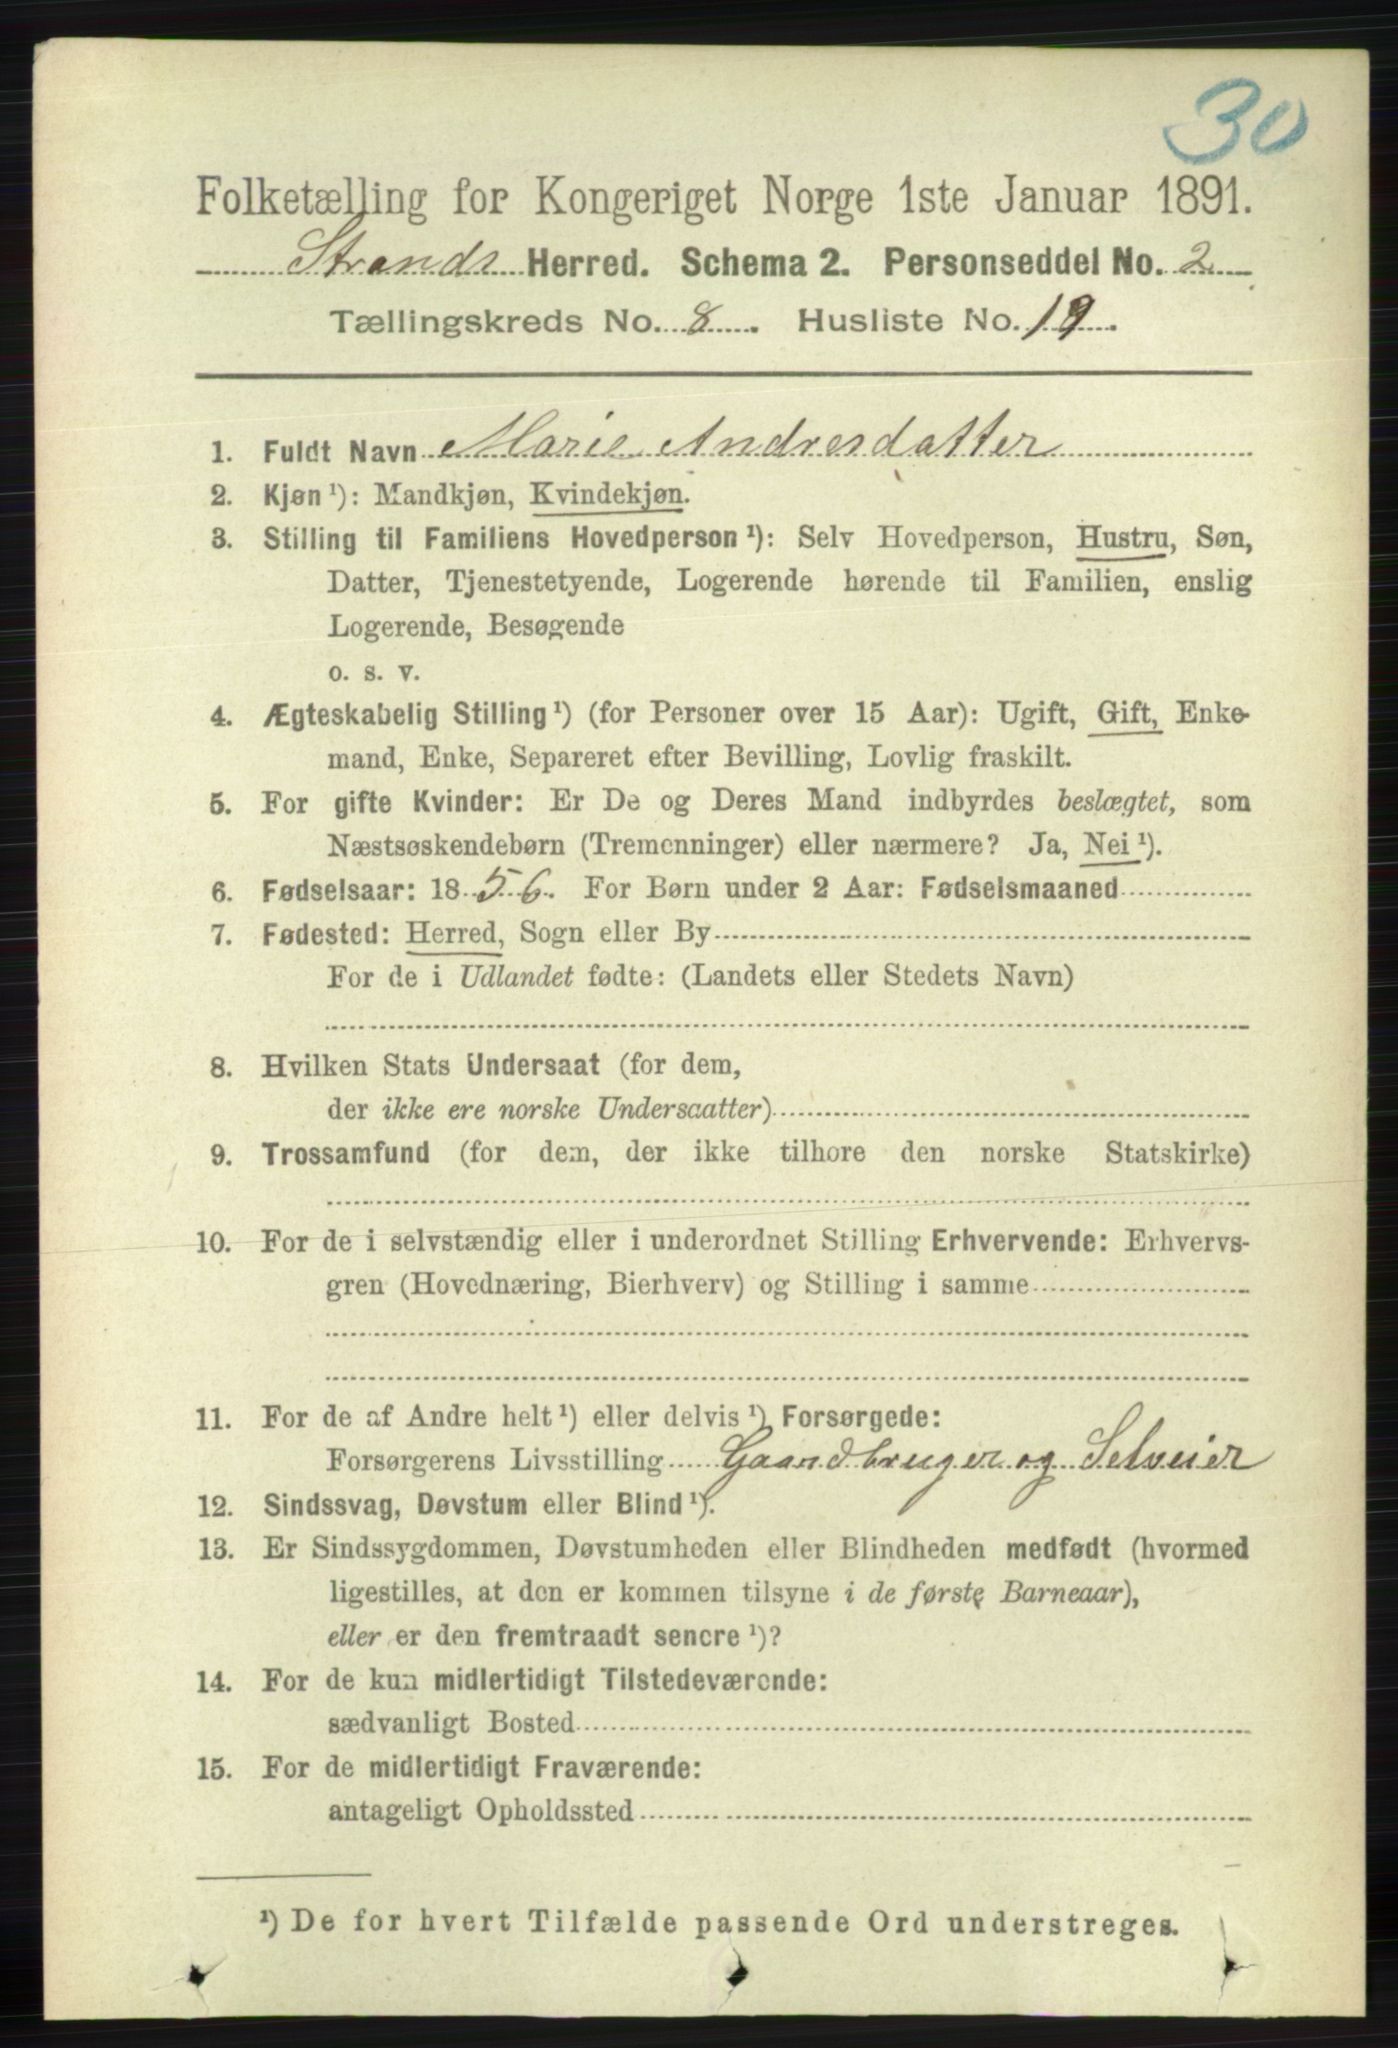 30
Folketælling for Kongeriget Norge 1ste Januar 1891.
Strands Herred. Schema 2. Personseddel No. 2
Tællingskreds No. 8. Husliste No. 19.
1. Fuldt Navn Marie Andresdatter
2. Kjøn ¹): Mandkjøn, Kvindekjøn.
3. Stilling til Familiens Hovedperson ¹): Selv Hovedperson, Hustru, Søn,
Datter, Tjenestetyende, Logerende hørende til Familien, enslig
Logerende, Besøgende
o. s. v.
4. Ægteskabelig Stilling ¹) (for Personer over 15 Aar): Ugift, Gift, Enke-
mand, Enke, Separeret efter Bevilling, Lovlig fraskilt.
5. For gifte Kvinder: Er De og Deres Mand indbyrdes beslægtet, som
Næstsøskendebørn (Tremenninger) eller nærmere? Ja, Nei ¹).
6. Fødselsaar: 1856. For Børn under 2 Aar: Fødselsmaaned
7. Fødested: Herred, Sogn eller By
For de i Udlandet fødte: (Landets eller Stedets Navn)
8. Hvilken Stats Undersaat (for dem,
der ikke ere norske Undersaatter)
9. Trossamfund (for dem, der ikke tilhøre den norske Statskirke)
10. For de i selvstændig eller i underordnet Stilling Erhvervende: Erhvervs-
gren (Hovednæring, Bierhverv) og Stilling i samme
11. For de af Andre helt ¹) eller delvis ¹) Forsørgede:
Forsørgerens Livsstilling Gaardbruger og Selveier
12. Sindssvag, Døvstum eller Blind ¹).
13. Er Sindssygdommen, Døvstumheden eller Blindheden medfødt (hvormed
ligestilles, at den er kommen tilsyne i de første Barneaar),
eller er den fremtraadt senere ¹)?
14. For de kun midlertidigt Tilstedeværende:
sædvanligt Bosted
15. For de midlertidigt Fraværende:
antageligt Opholdssted
¹) De for hvert Tilfælde passende Ord understreges.